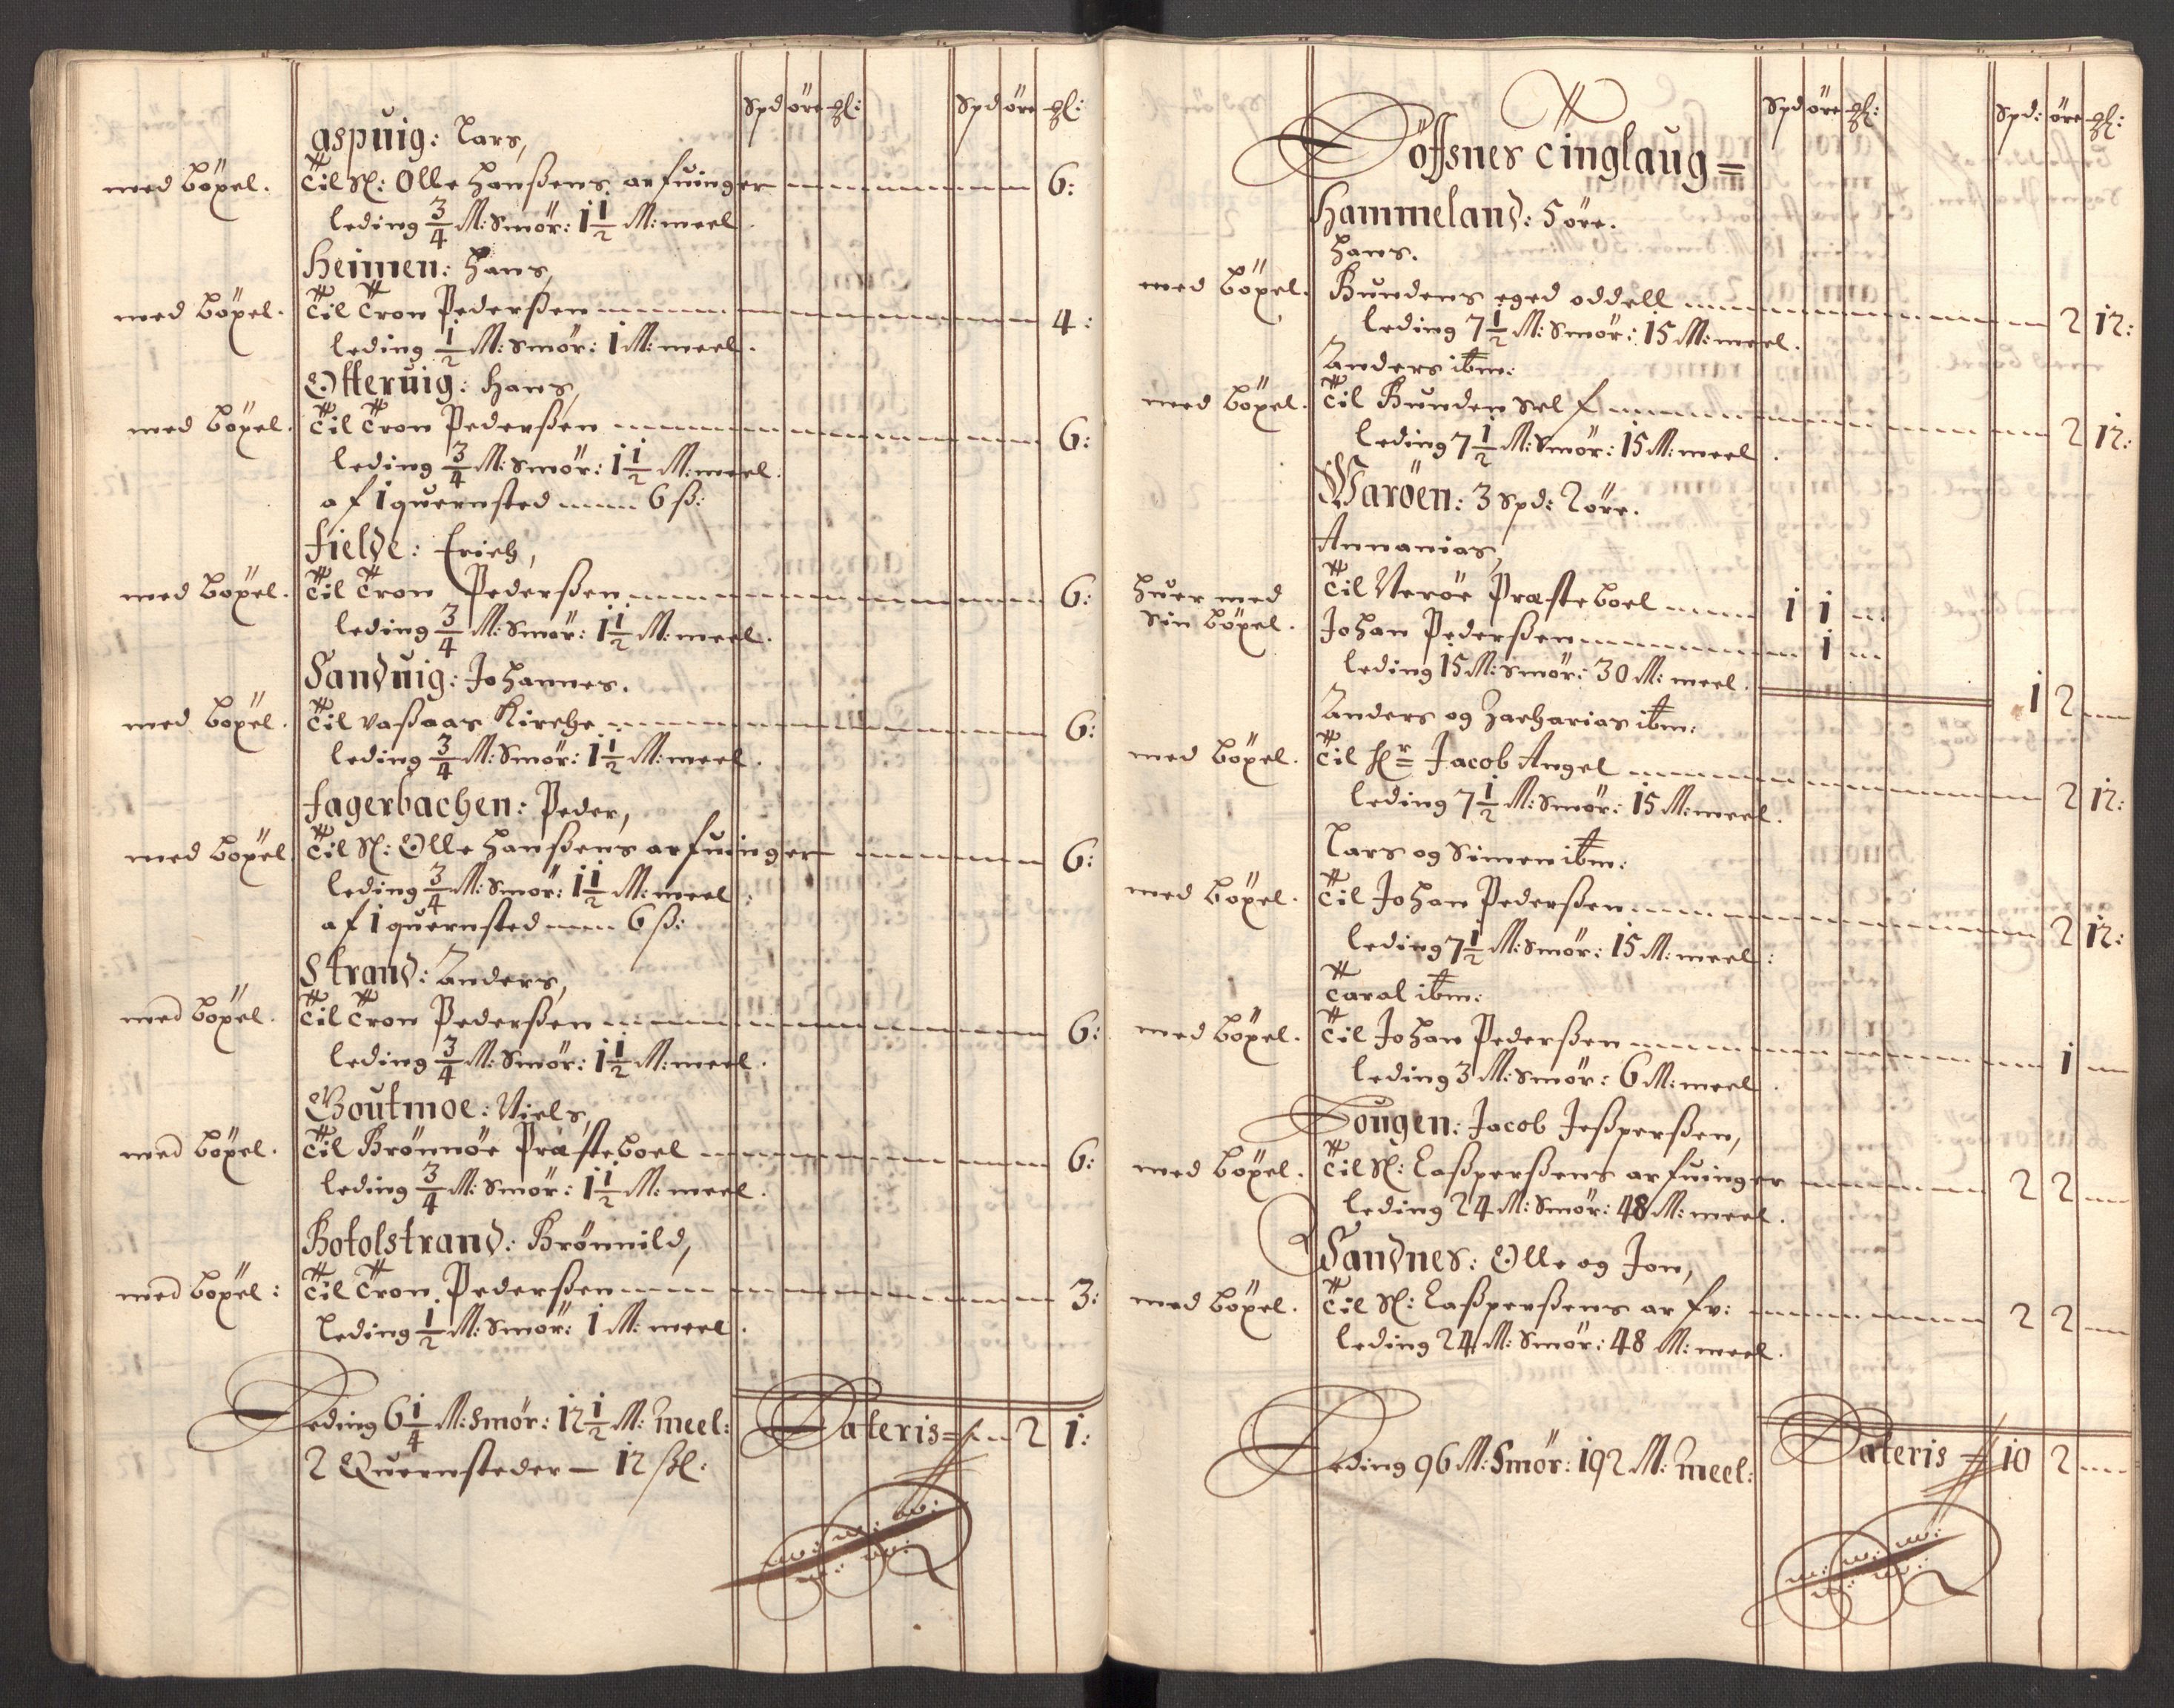 Spd öre ꝑl: Spd öre ꝑl:
aspuig: Lars,
med böxel. Til Sl: Olle Hanßens arfuinger 6:
leding 3/4 M: Smör: 1 1/2 M: meel.
Heimen: Hans,
med böxel. Til Tron Pederßen 4:
leding 1/2 M: Smör: 1 M: meel.
Otteruig: Hans,
med böxel. Til Tron Pederßen 6:
leding 3/4 M: Smör: 1 1/2 M: meel.
af 1 quernsted 6 ß:
Fielde: Erich,
med böxel. Til Tron Pederßen 6:
leding 3/4 M: Smör: 1 1/2 M: meel.
Sanduig: Johannes.
med böxel. Til vaßaas Kirche 6:
leding 3/4 M: Smör: 1 1/2 M: meel.
Fagerbachen: Peder,
med böxel. Til Sl: Olle Hanßens arfuinger 6:
leding 3/4 M: Smör: 1 1/2 M: meel:
af 1 quernsted 6 ß:
Strand: Anders,
med böxel. Til Tron Pederßen 6:
leding 3/4 M: Smör: 1 1/2 M: meel.
Goutmoe: Niels,
med böxel. Til Brönnöe Præsteboel 6:
leding 3/4 M: Smör: 1 1/2 M: meel.
Botolstrand: Brönnild,
med böxel: Til Tron Pederßen 3:
leding 1/2 M: Smör: 1 M: meel.
Leding 6 1/4 M: Smör: 12 1/2 M: meel: Lateris 2 1:
2 Quernsteder — 12 ßl:
Spd öre ꝑl: Spd: öre ꝑl:
Töffsnes Tinglaug
Hammeland: 5 öre.
Hans.
med böxel. Bundens eged oddell 2 12:
leding 7 1/2 M: Smör: 15 M: meel.
Anders ibm:
med böxel. Til Bunden self 2 12:
leding 7 1/2 M: Smör: 15 M: meel.
Waröen: 3 Spd: 2 öre.
Annanias,
Huer med Til Neröe Præsteboel 1 1
Sin böxel. Johan Pederßen 1
leding 15 M: Smör: 30 M: meel. 1 2
Anders og Zacharias ibm:
med böxel. Til Hr Jacob Angel 2 12:
leding 7 1/2 M: Smör: 15 M: meel.
Lars og Simen ibm:
med böxel. Til Johan Pederßen 2 12:
leding 7 1/2 M: Smör: 15 M: meel:
Taral ibm:
med böxel. Til Johan Pederßen 1
leding 3 M: Smör: 6 M: meel.
Hougen: Jacob Jeßperßen,
med böxel. Til Sl: Caßperßens arfuinger 2 2
leding 24 M: Smör: 48 M: meel.
Sandnes: Olle og Jon,
med böxel. Til Sl: Caßperßens arfv: 2 2
leding 24 M: Smör: 48 M: meel.
Leding 96 M: Smör: 192 M: meel: Lateris 10 2